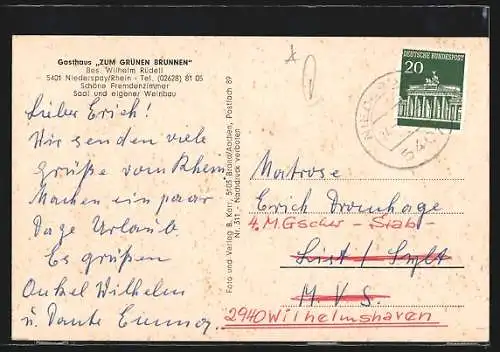 Gasthaus „ZUM GRÜNEN BRUNNEN"
Bes. Wilhelm Rüdell
5401 Niederspay/Rhein - Tel. (02628) 81 05
Schöne Fremdenzimmer
Saal und eigener Weinbau
Lieber Erich!
Wir senden viele
Grüße vom Rhein.
Machen ein paar
Tage Urlaub.
Es grüßen
Onkel Wilhelm
u. Tante Emmy
Foto und Verlag B. Korr, 5105 Brand/Aachen, Postfach 89
Nr. 511 - Nachdruck verboten
DEUTSCHE BUNDESPOST
20
5401
Matrose
Erich Dromhage
4. M.Gschw - Stab
List / Sylt
M.V.S.
2940 Wilhelmshaven